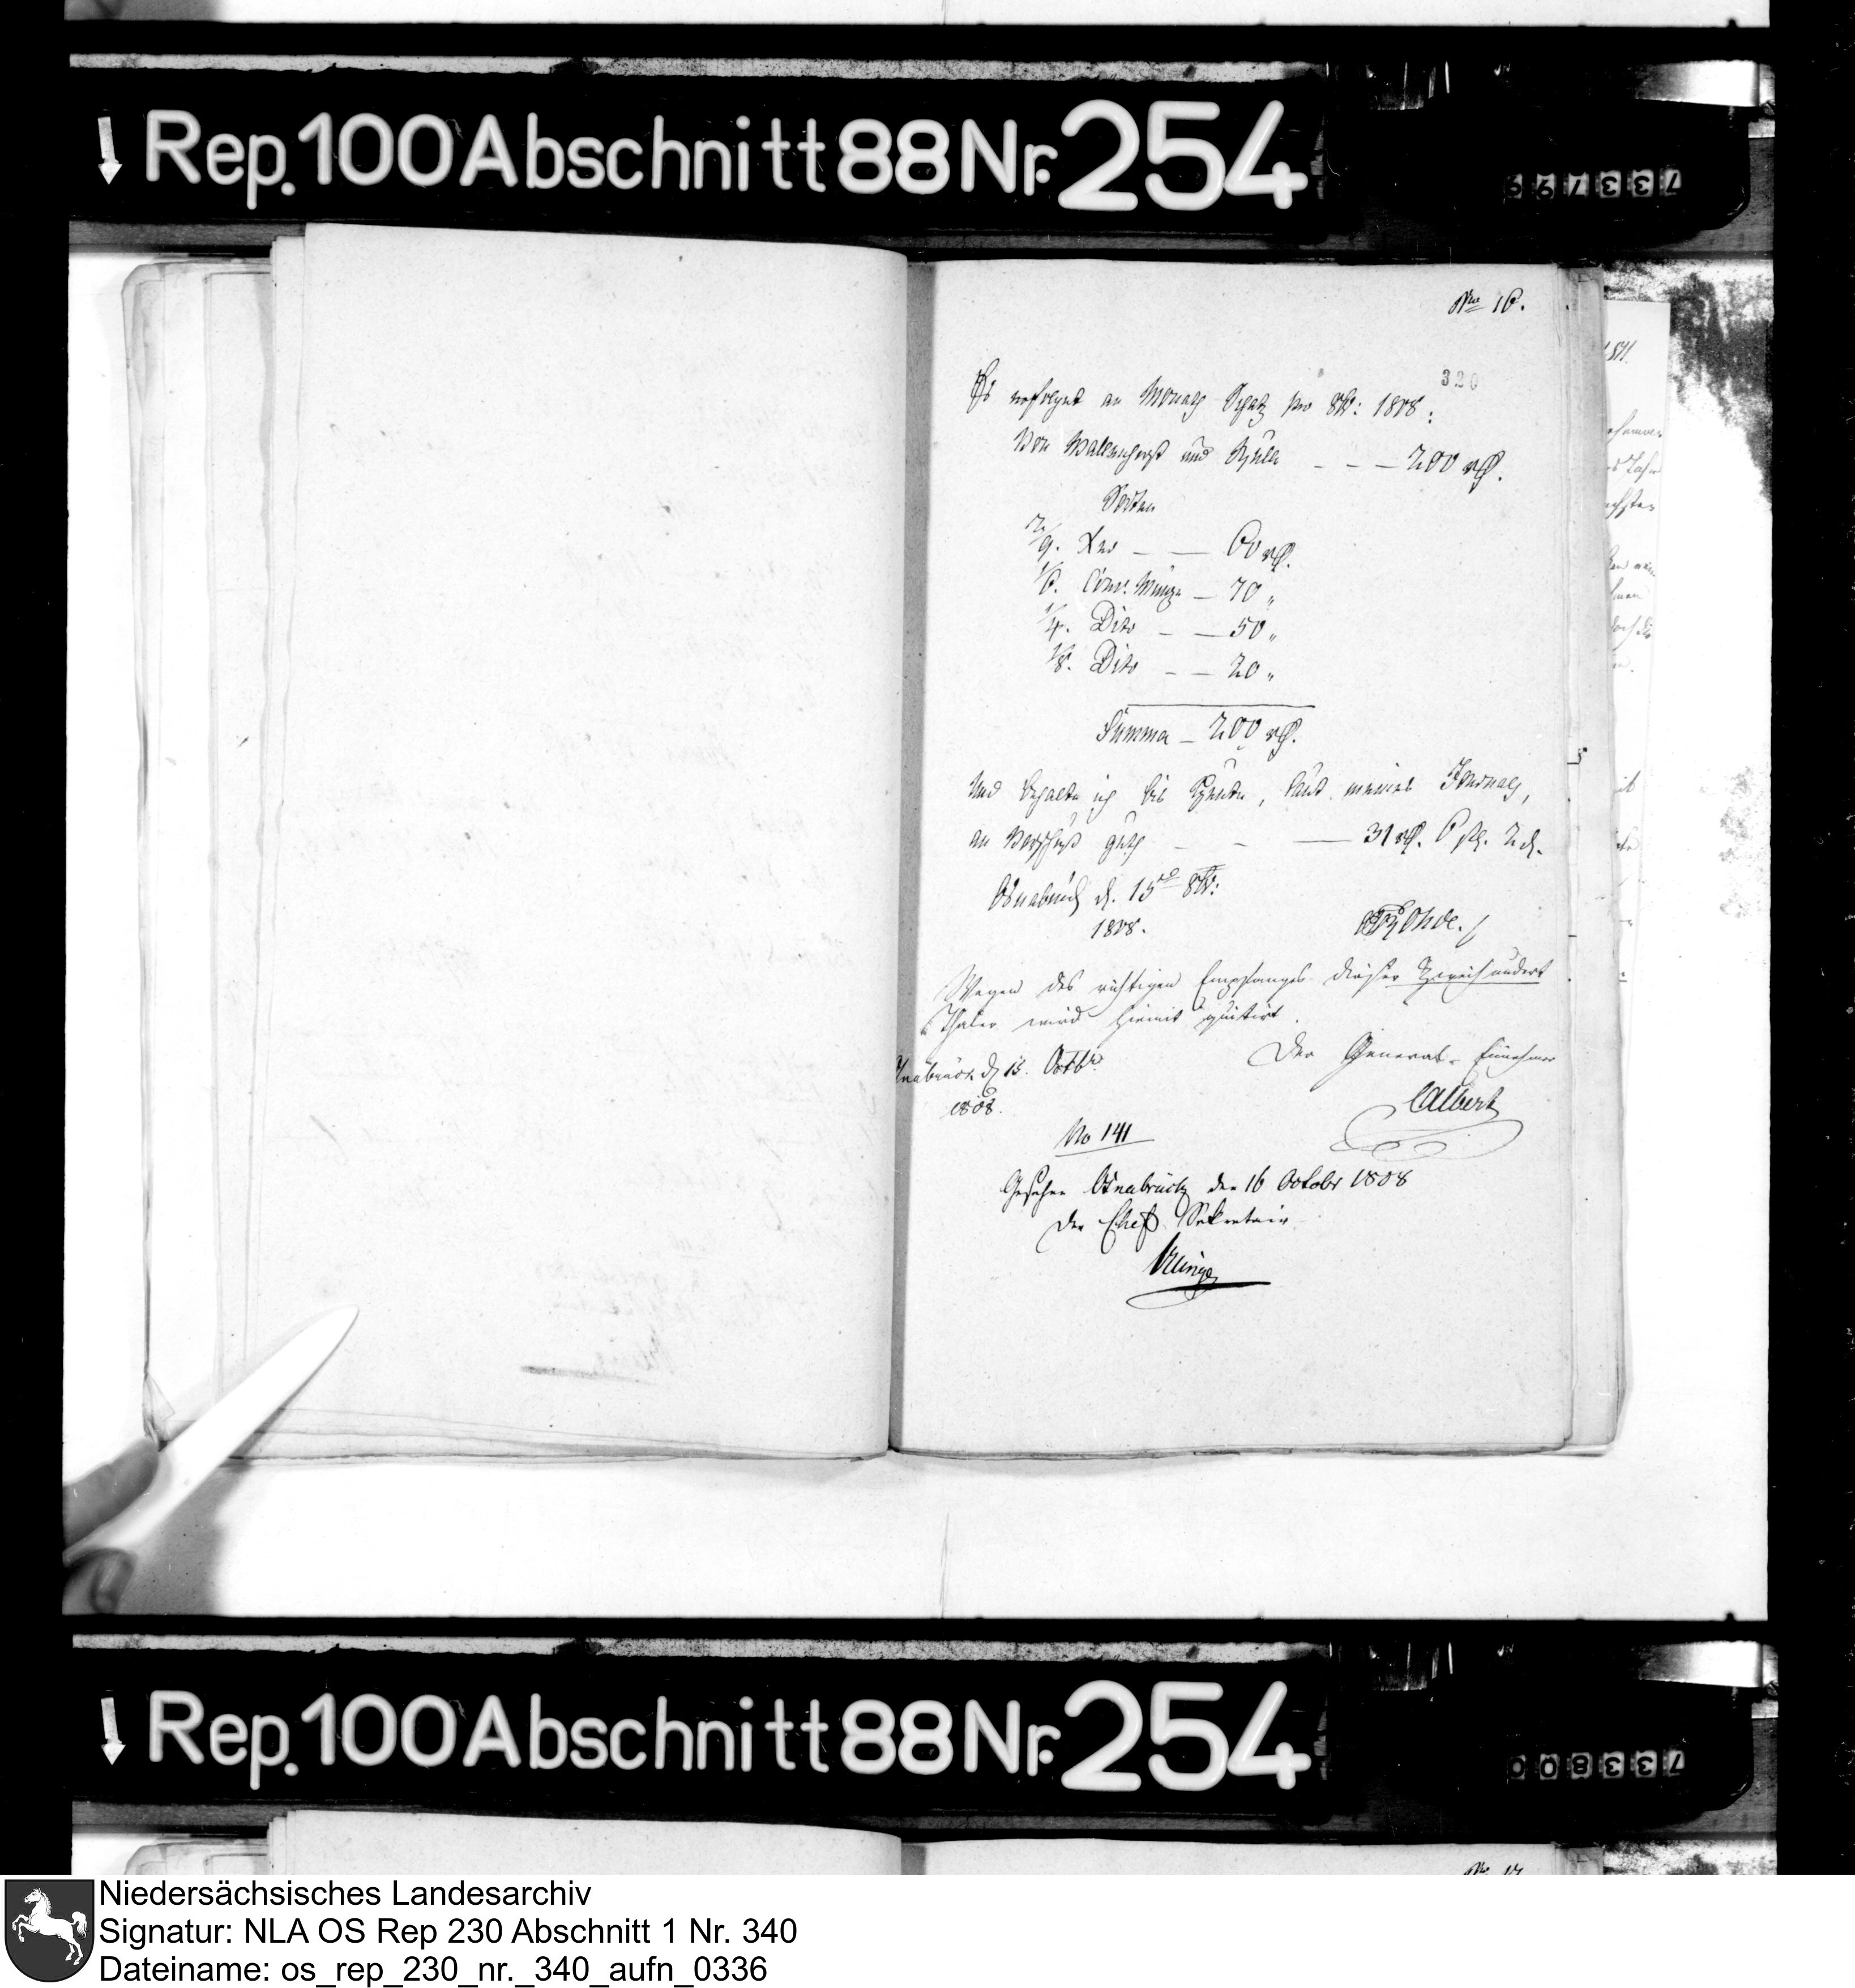 Rep. 100 Abschnitt 88 Nr. 254
733799
No 16.
320
Es erfolget an Monath Schatz pro 8br: 1808:
Von Wallenhorst und Rulle - - - 200 rt.
Sorten
2/9. - - 60 rt.
1/6. Conv: Münze - 70 "
1/4. Dito - - 50 "
1/8. Dito - - 20 "
Summa - 200 rt.
Und behalte ich bis heute, laut meines Journals,
an Vorschuß guth - - - 31 rt. 6 ßl. 2 d.
Osnabrück d. 15 8br:
1808.
Wegen des richtigen Empfanges dieser Zweihundert
Thaler wird hiemit quitirt.
Osnabrück d 15. Octbr
1808.
Der General-Einnehmer
Calbert
No 141
Gesehen Osnabrück den 16 October 1808
Der Chef Sekretair
Rep. 100 Abschnitt 88 Nr. 254
733800
Niedersächsisches Landesarchiv
Signatur: NLA OS Rep 230 Abschnitt 1 Nr. 340
Dateiname: os_rep_230_nr._340_aufn_0336